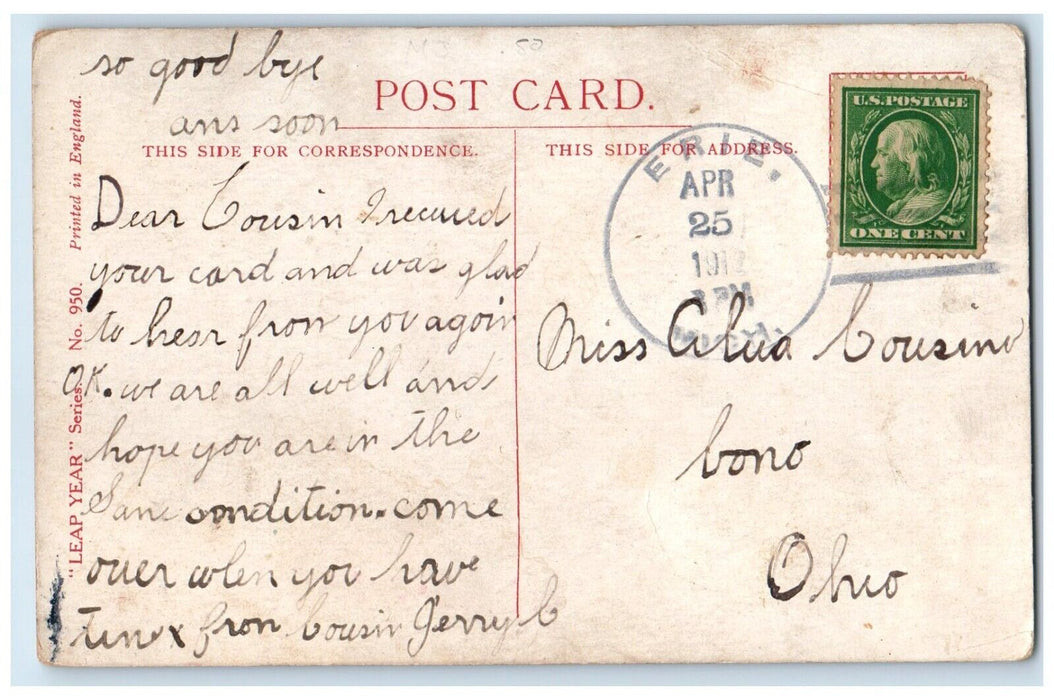 so good bye
ans soon
POST CARD.
THIS SIDE FOR CORRESPONDENCE.
THIS SIDE FOR ADDRESS.
"LEAP YEAR" Series. No. 950. Printed in England.
Dear Cousin I recieued
your card and was glad
to hear from you again
OK. we are all well and
hope you are in the
Sane condition. come
ouer when you have
x fron Cousin Jerry C
ERIE.
APR
25
1912
PM
MICH.
U.S. POSTAGE
ONE CENT
Miss Alua Cousino
bono
Ohio